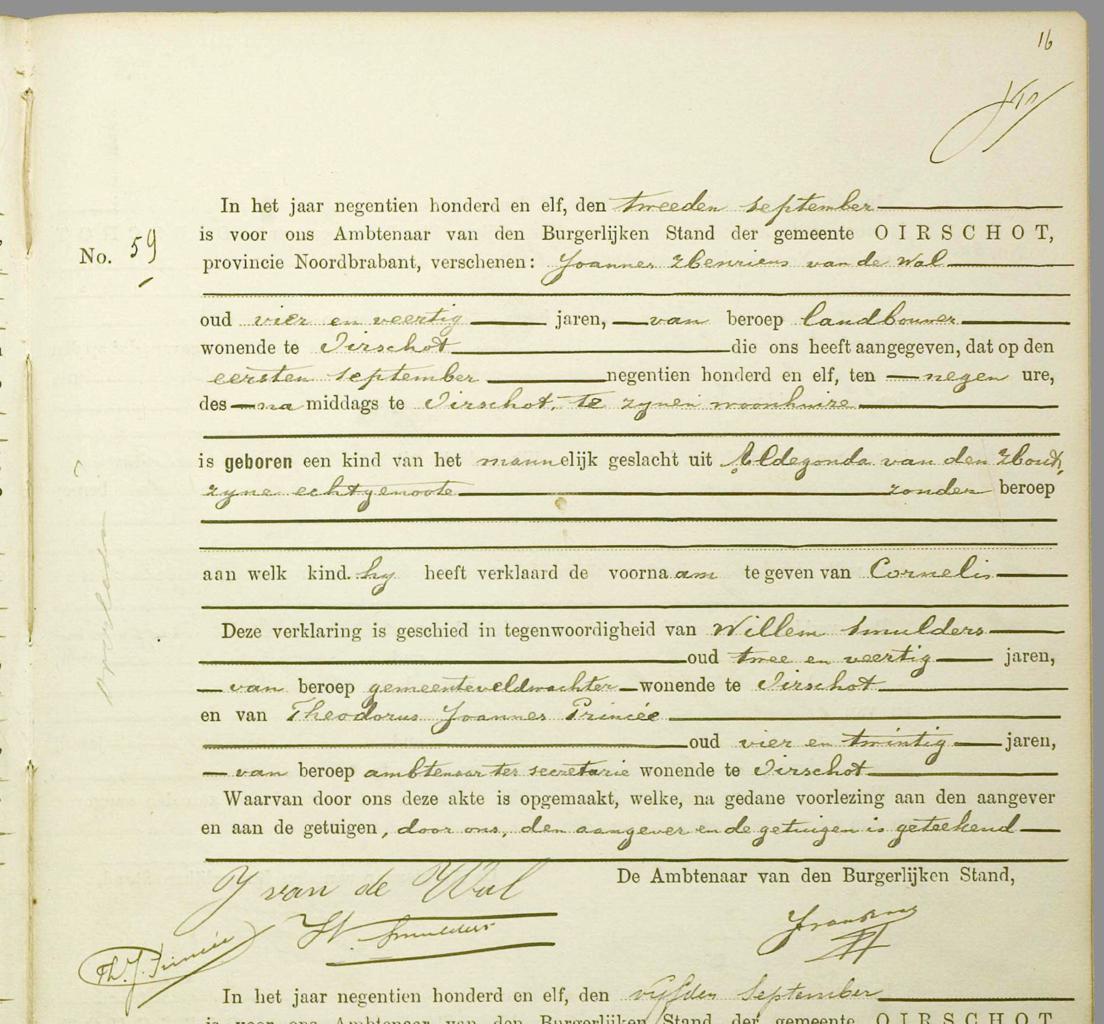 16
In het jaar negentien honderd en elf, den tweeden september
is voor ons Ambtenaar van den Burgerlijken Stand der gemeente OIRSCHOT,
No. 59
provincie Noordbrabant, verschenen: Joannes Henricus van de Wal
oud vier en veertig jaren, van beroep landbouwer
wonende te Oirschot die ons heeft aangegeven, dat op den
eersten september negentien honderd en elf, ten negen ure,
des na middags te Oirschot, te zynen woonhuize
is geboren een kind van het mannelijk geslacht uit Aldegonda van den Hout,
zyne echtgenoote zonder beroep
aan welk kind hy heeft verklaard de voornaam te geven van Cornelis
Deze verklaring is geschied in tegenwoordigheid van Willem Smulders
oud twee en veertig jaren,
van beroep gemeenteveldwachter wonende te Oirschot
en van Theodorus Joannes Princée
oud vier en twintig jaren,
van beroep ambtenaar ter secretarie wonende te Oirschot
Waarvan door ons deze akte is opgemaakt, welke, na gedane voorlezing aan den aangever
en aan de getuigen, door ons, den aangever en de getuigen is geteekend
De Ambtenaar van den Burgerlijken Stand,
J van de Wal
W. Smulders
Th. J. Princée
In het jaar negentien honderd en elf, den vijfden September
is voor ons Ambtenaar van den Burgerlijken Stand der gemeente OIRSCHOT,